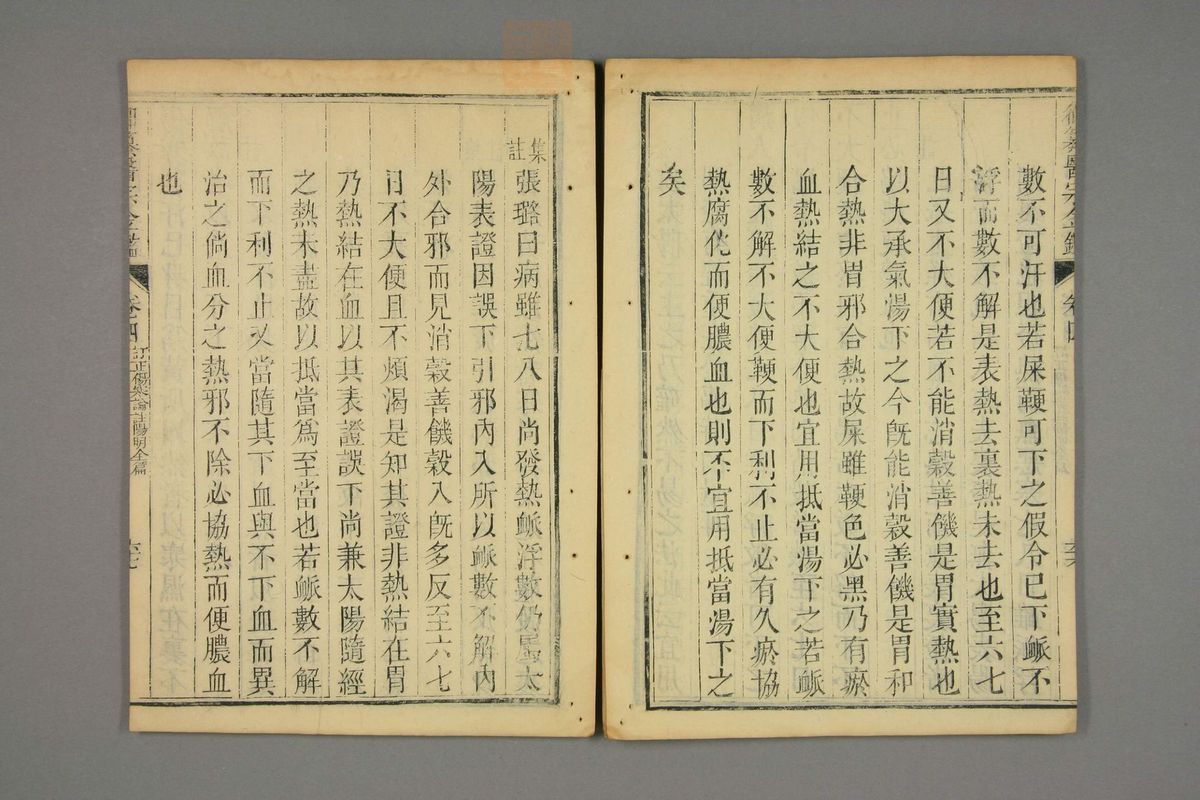 御纂醫宗金鑑 卷四
數不可汗也若屎鞕可下之假令已下脈不
浮而數不解是表熱去裏熱未去也至六七
日又不大便若不能消穀善饑是胃實熱也
以大承氣湯下之今旣能消穀善饑是胃和
合熱非胃邪合熱故屎雖鞕色必黑乃有瘀
血熱結之不大便也宜用抵當湯下之若脈
數不解不大便鞕而下利不止必有久瘀協
熱腐化而便膿血也則不宜用抵當湯下之
矣
集註
張璐曰病雖七八日尚發熱脈浮數仍屬太
陽表證因誤下引邪內入所以脈數不解內
外合邪而見消穀善饑穀入旣多反至六七
日不大便且不煩渴是知其證非熱結在胃
乃熱結在血以其表證誤下尚兼太陽隨經
之熱未盡故以抵當爲至當也若脈數不解
而下利不止又當隨其下血與不下血而異
治之倘血分之熱邪不除必協熱而便膿血
也
御纂醫宗金鑑 卷四 訂正傷寒論註陽明全篇